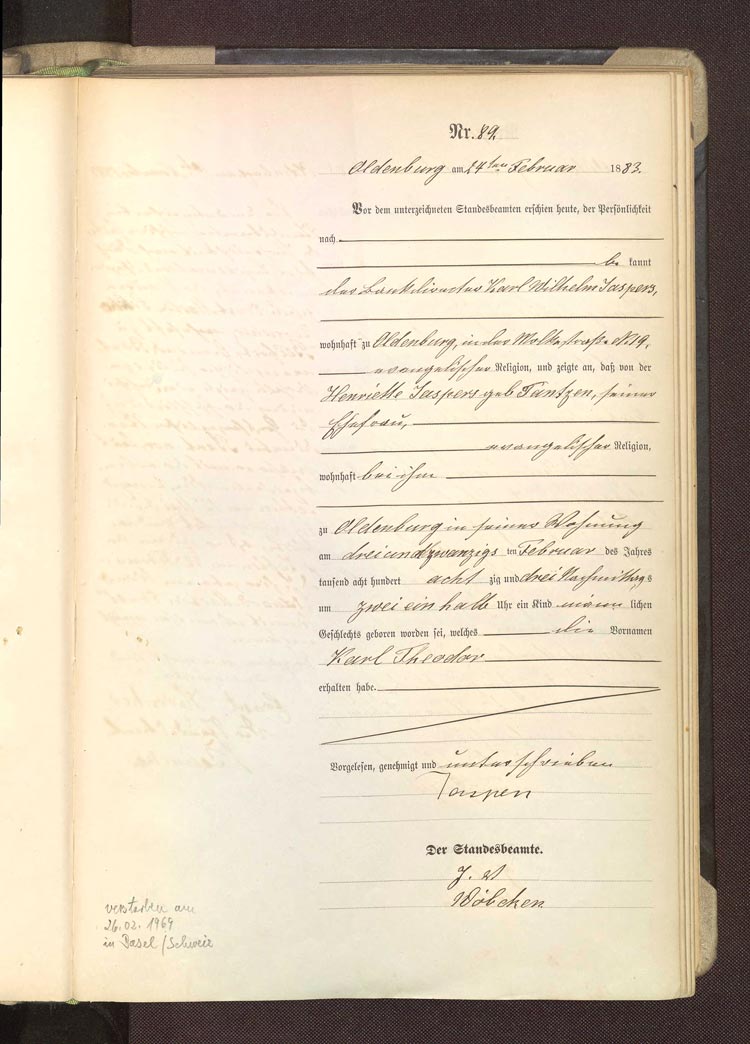 Nr. 89.
Oldenburg am 24ten Februar 1883.
Vor dem unterzeichneten Standesbeamten erschien heute, der Persönlichkeit
nach
be kannt
der Bankdirector Karl Wilhelm Jaspers,
wohnhaft zu Oldenburg, in der Moltkestraße No 19,
evangelischer Religion, und zeigte an, daß von der
Henriette Jaspers geb Tantzen, seiner
Ehefrau,
evangelischer Religion,
wohnhaft bei ihm
zu Oldenburg in seiner Wohnung
am dreiundzwanzigs ten Februar des Jahres
tausend acht hundert acht zig und drei Nachmittags
um zwei ein halb Uhr ein Kind männ lichen
Geschlechts geboren worden sei, welches die Vornamen
Karl Theodor
erhalten habe.
Vorgelesen, genehmigt und unterschrieben
Jaspers
Der Standesbeamte.
J. V.
Wöbcken
verstorben am
26.02.1969
in Basel/Schweiz